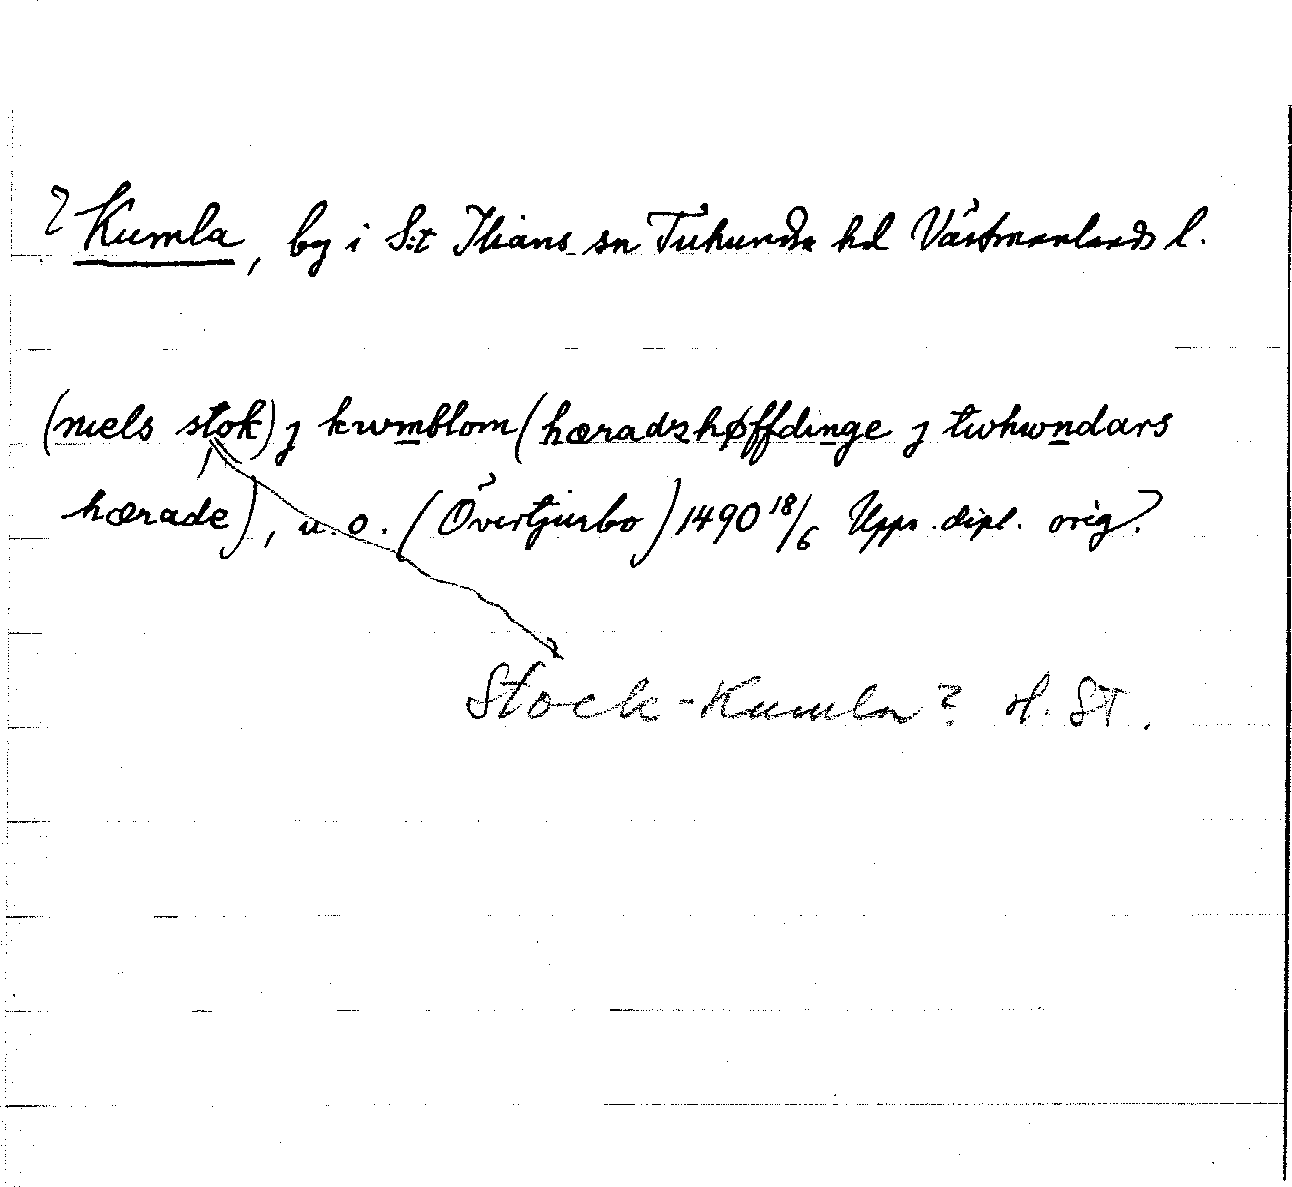 ? Kumla, by i S:t Ilians sn Tuhundra hd Västmanlands l.
(niels stok) j kwmblom (hæradzhøffdinge j twhwndars
hærade), u. o. (Övertjurbo) 1490 18/6 Upps. dipl. orig.
Stock-Kumla? ST.